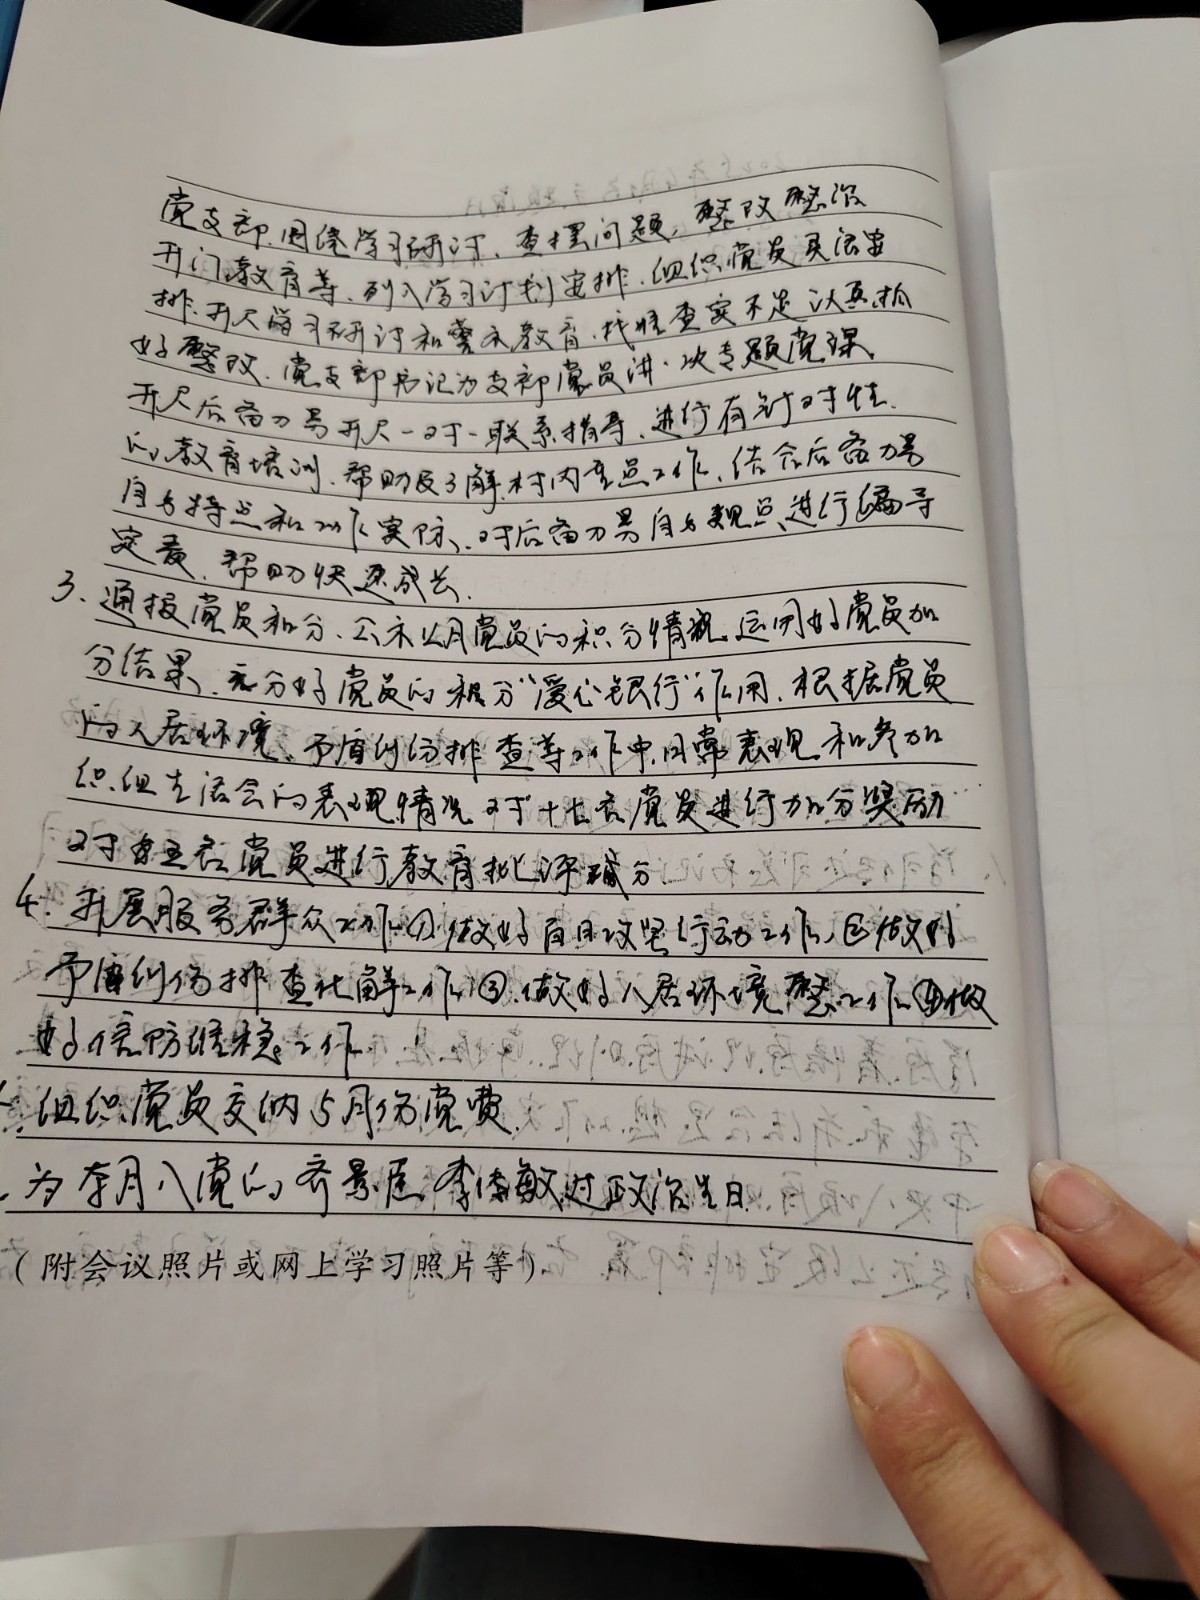 党支部围绕学习研讨、查摆问题、整改整治
开门教育等、列入学习计划安排、组织党员灵活安
排、开展学习研讨和警示教育、找准查实不足认真抓
好整改、党支部书记为支部党员讲一次专题党课
开展后备力量开展一对一联系指导、进行有针对性
的教育培训、帮助及了解村内重点工作、结合后备力量
自身特点和工作实际、对后备力量自身进行
帮助快速成长.
3. 通报党员积分、公示4月党员的积分情况、运用好党员加
分结果、充分好党员的积分“爱心银行”作用、根据党员
的人居环境、矛盾纠纷排查等工作中日常表现和参加
织组生活会的表现情况对于十七名党员进行加分奖励
对于五名党员进行教育批评减分.
4. 开展服务群众工作①做好百日攻坚行动工作、②做好
矛盾纠纷排查化解工作③.做好人居环境整工作④做
好信访维稳工作.
组织党员交纳5月份党费.
为本月入党的齐景辰、李传敏过政治生日.
(附会议照片或网上学习照片等)